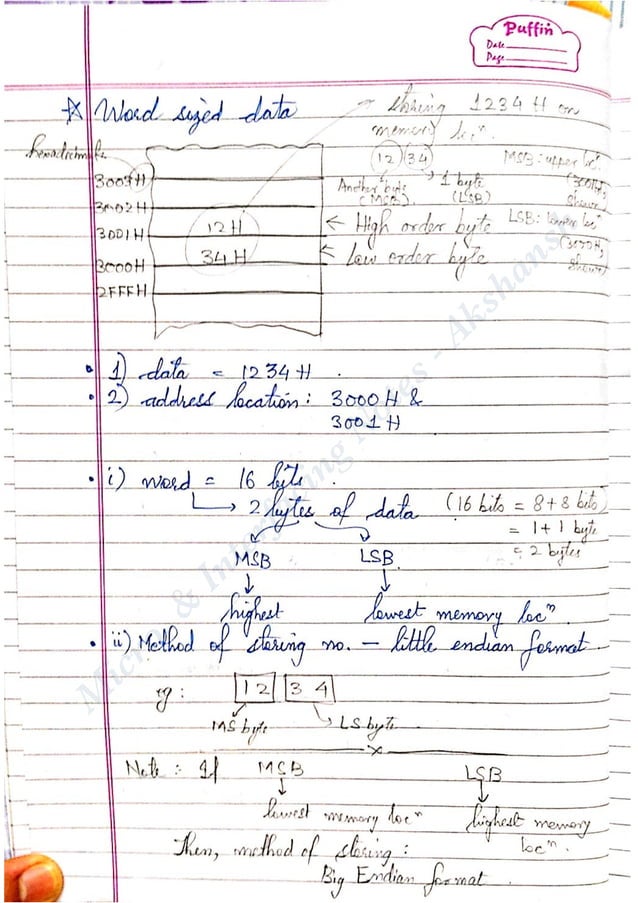 Puffin
Date
Page
☆ Word sized data
storing 1234H on
memory locⁿ.
12 34
MSB: upper locⁿ.
(3001H,
shown)
Another byte
(MSB)
1 byte
(LSB)
LSB: lower locⁿ
(3000H,
shown)
hexadecimal
3003H
3002H
3001H
3000H
2FFFH
12H
34H
← High order byte
← Low order byte
• 1) data = 1234H .
• 2) address location: 3000H &
3001H
• i) word = 16 bits .
↳ 2 bytes of data
(16 bits = 8+8 bits)
= 1+1 byte
= 2 bytes
MSB LSB
↓ ↓
highest lowest memory locⁿ.
• ii) Method of storing no. – little endian format.
eg: 12 34
MS byte LS byte
x
Note: If MSB LSB
↓ ↓
lowest memory locⁿ highest memory
locⁿ.
Then, method of storing:
Big Endian format.
& Interfacing Notes - Akshansh